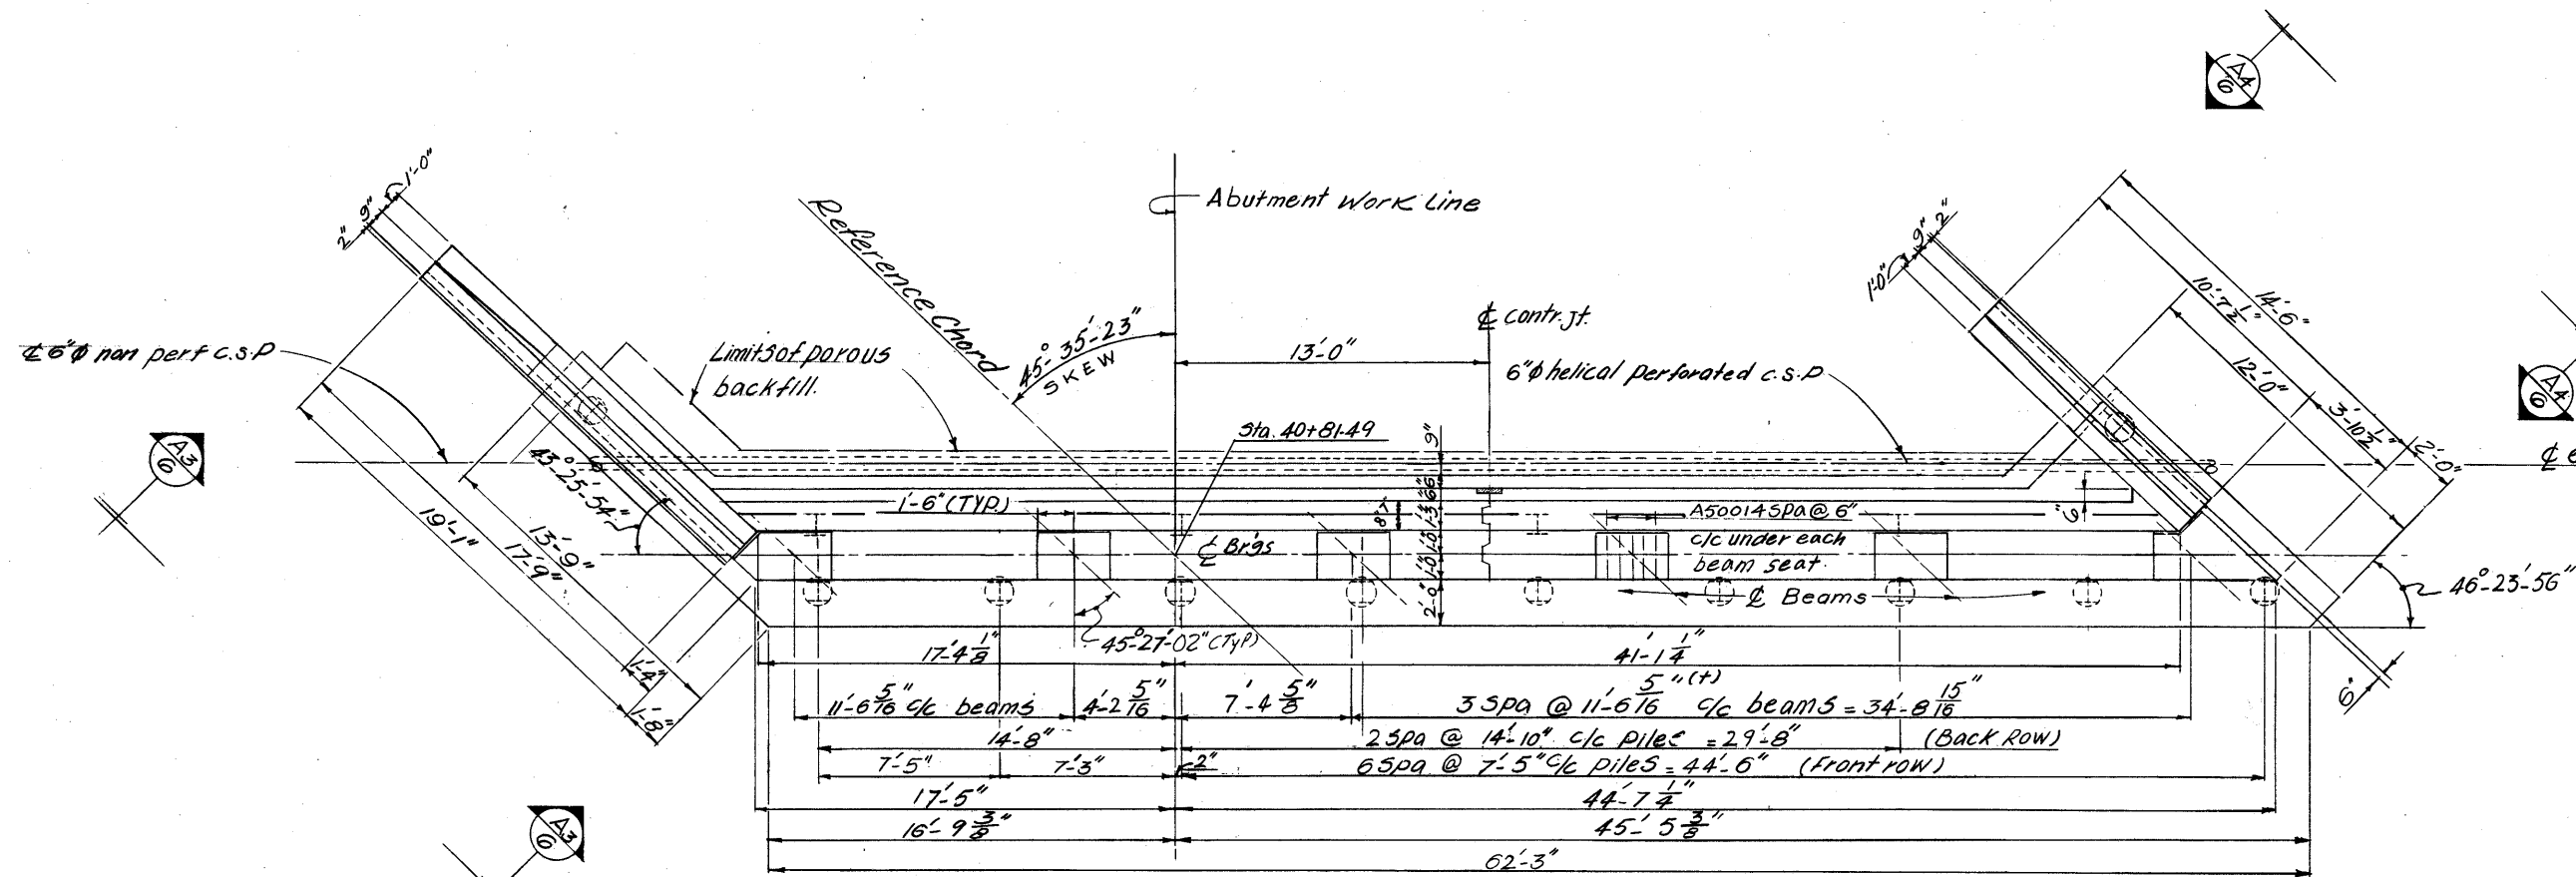 A4
6
1'-0"
9"
2"
Reference Chord
Abutment Work Line
1'-0"
9"
2"
14'-6"
10'-7 1/2"
12'-0"
3'-10 1/2"
2'-0"
℄ 6"ϕ non perf c.s.p
Limits of porous
backfill.
45°-35'-23"
SKEW
13'-0"
℄ Contr. Jt.
6"ϕ helical perforated c.s.p
A4
6
A3
6
Sta. 40+81.49
9"
℄ 6
43°-25'-54"
1'-6" (TYP.)
A5001 4 Spa @ 6"
c/c under each
beam seat.
℄ Brgs
6"
6"
1'-3"
1'-0"
1'-0"
2'-0"
℄ Beams
46°-23'-56"
19'-1"
13'-9"
17'-9"
45°-27'-02" (Typ)
1'-4"
1'-8"
17'-4 1/8"
41'-1 1/4"
6"
11'-6 5/16" c/c beams
4'-2 5/16"
7'-4 5/8"
3 Spa @ 11'-6 5/16"(+) c/c beams = 34'-8 15/16"
14'-8"
2 Spa @ 14'-10" c/c piles = 29'-8" (Back Row)
7'-5"
7'-3"
2"
6 Spa @ 7'-5" c/c piles = 44'-6" (Front row)
17'-5"
44'-7 1/4"
16'-9 3/8"
45'-5 3/8"
62'-3"
A3
6